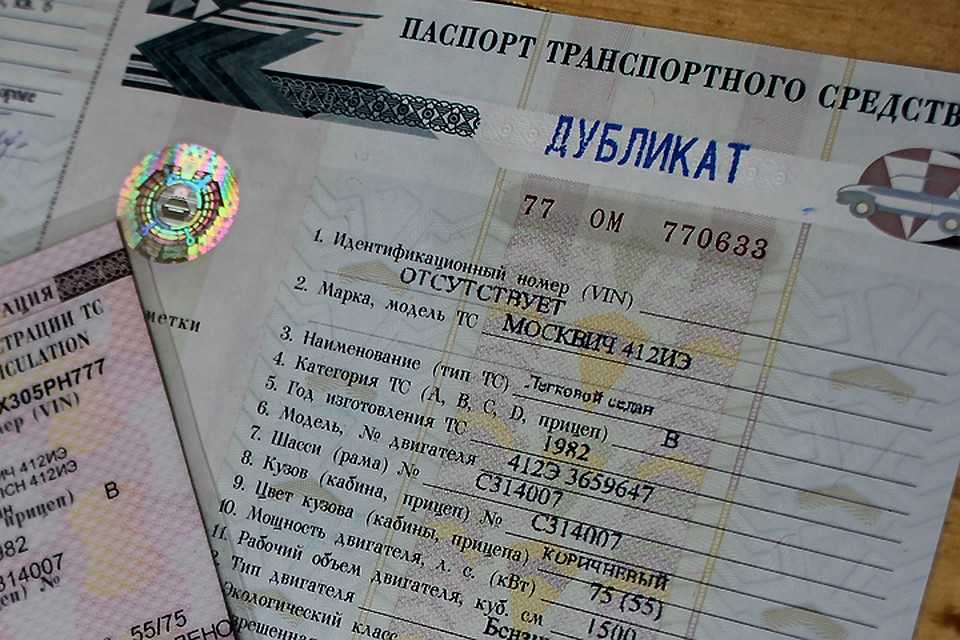 ПАСПОРТ ТРАНСПОРТНОГО СРЕДСТВ
ДУБЛИКАТ
77 ОМ 770633
1. Идентификационный номер (VIN)
ОТСУТСТВУЕТ
2. Марка, модель ТС МОСКВИЧ 412ИЭ
3. Наименование (тип ТС) Легковой седан
4. Категория ТС (А, В, С, D, прицеп) В
5. Год изготовления ТС 1982
6. Модель, № двигателя 412Э 3659647
7. Шасси (рама) № С314007
8. Кузов (кабина, прицеп) № С314007
9. Цвет кузова (кабины, прицепа) КОРИЧНЕВЫЙ
10. Мощность двигателя, л. с. (кВт) 75 (55)
11. Рабочий объем двигателя, куб. см 1500
Тип двигателя
Экологический класс
метки
АЦИЯ
СТРАЦИИ ТС
ICULATION
Х305РН777
ер (VIN)
ИЧ 412ИЭ
ICH 412ИЭ
прицеп) В
982
314007
еп) №
55/75